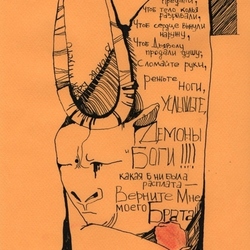 продали,
Чтоб тело копья
разрывали,
Чтоб сердце вынули
наружу,
Чтоб Дьяволу
продали душу,
Сломайте руки,
режьте
ноги,
Услышьте,
Демоны
и Боги!!!!
какая б ни была
расплата —
Верните Мне
моего Брата